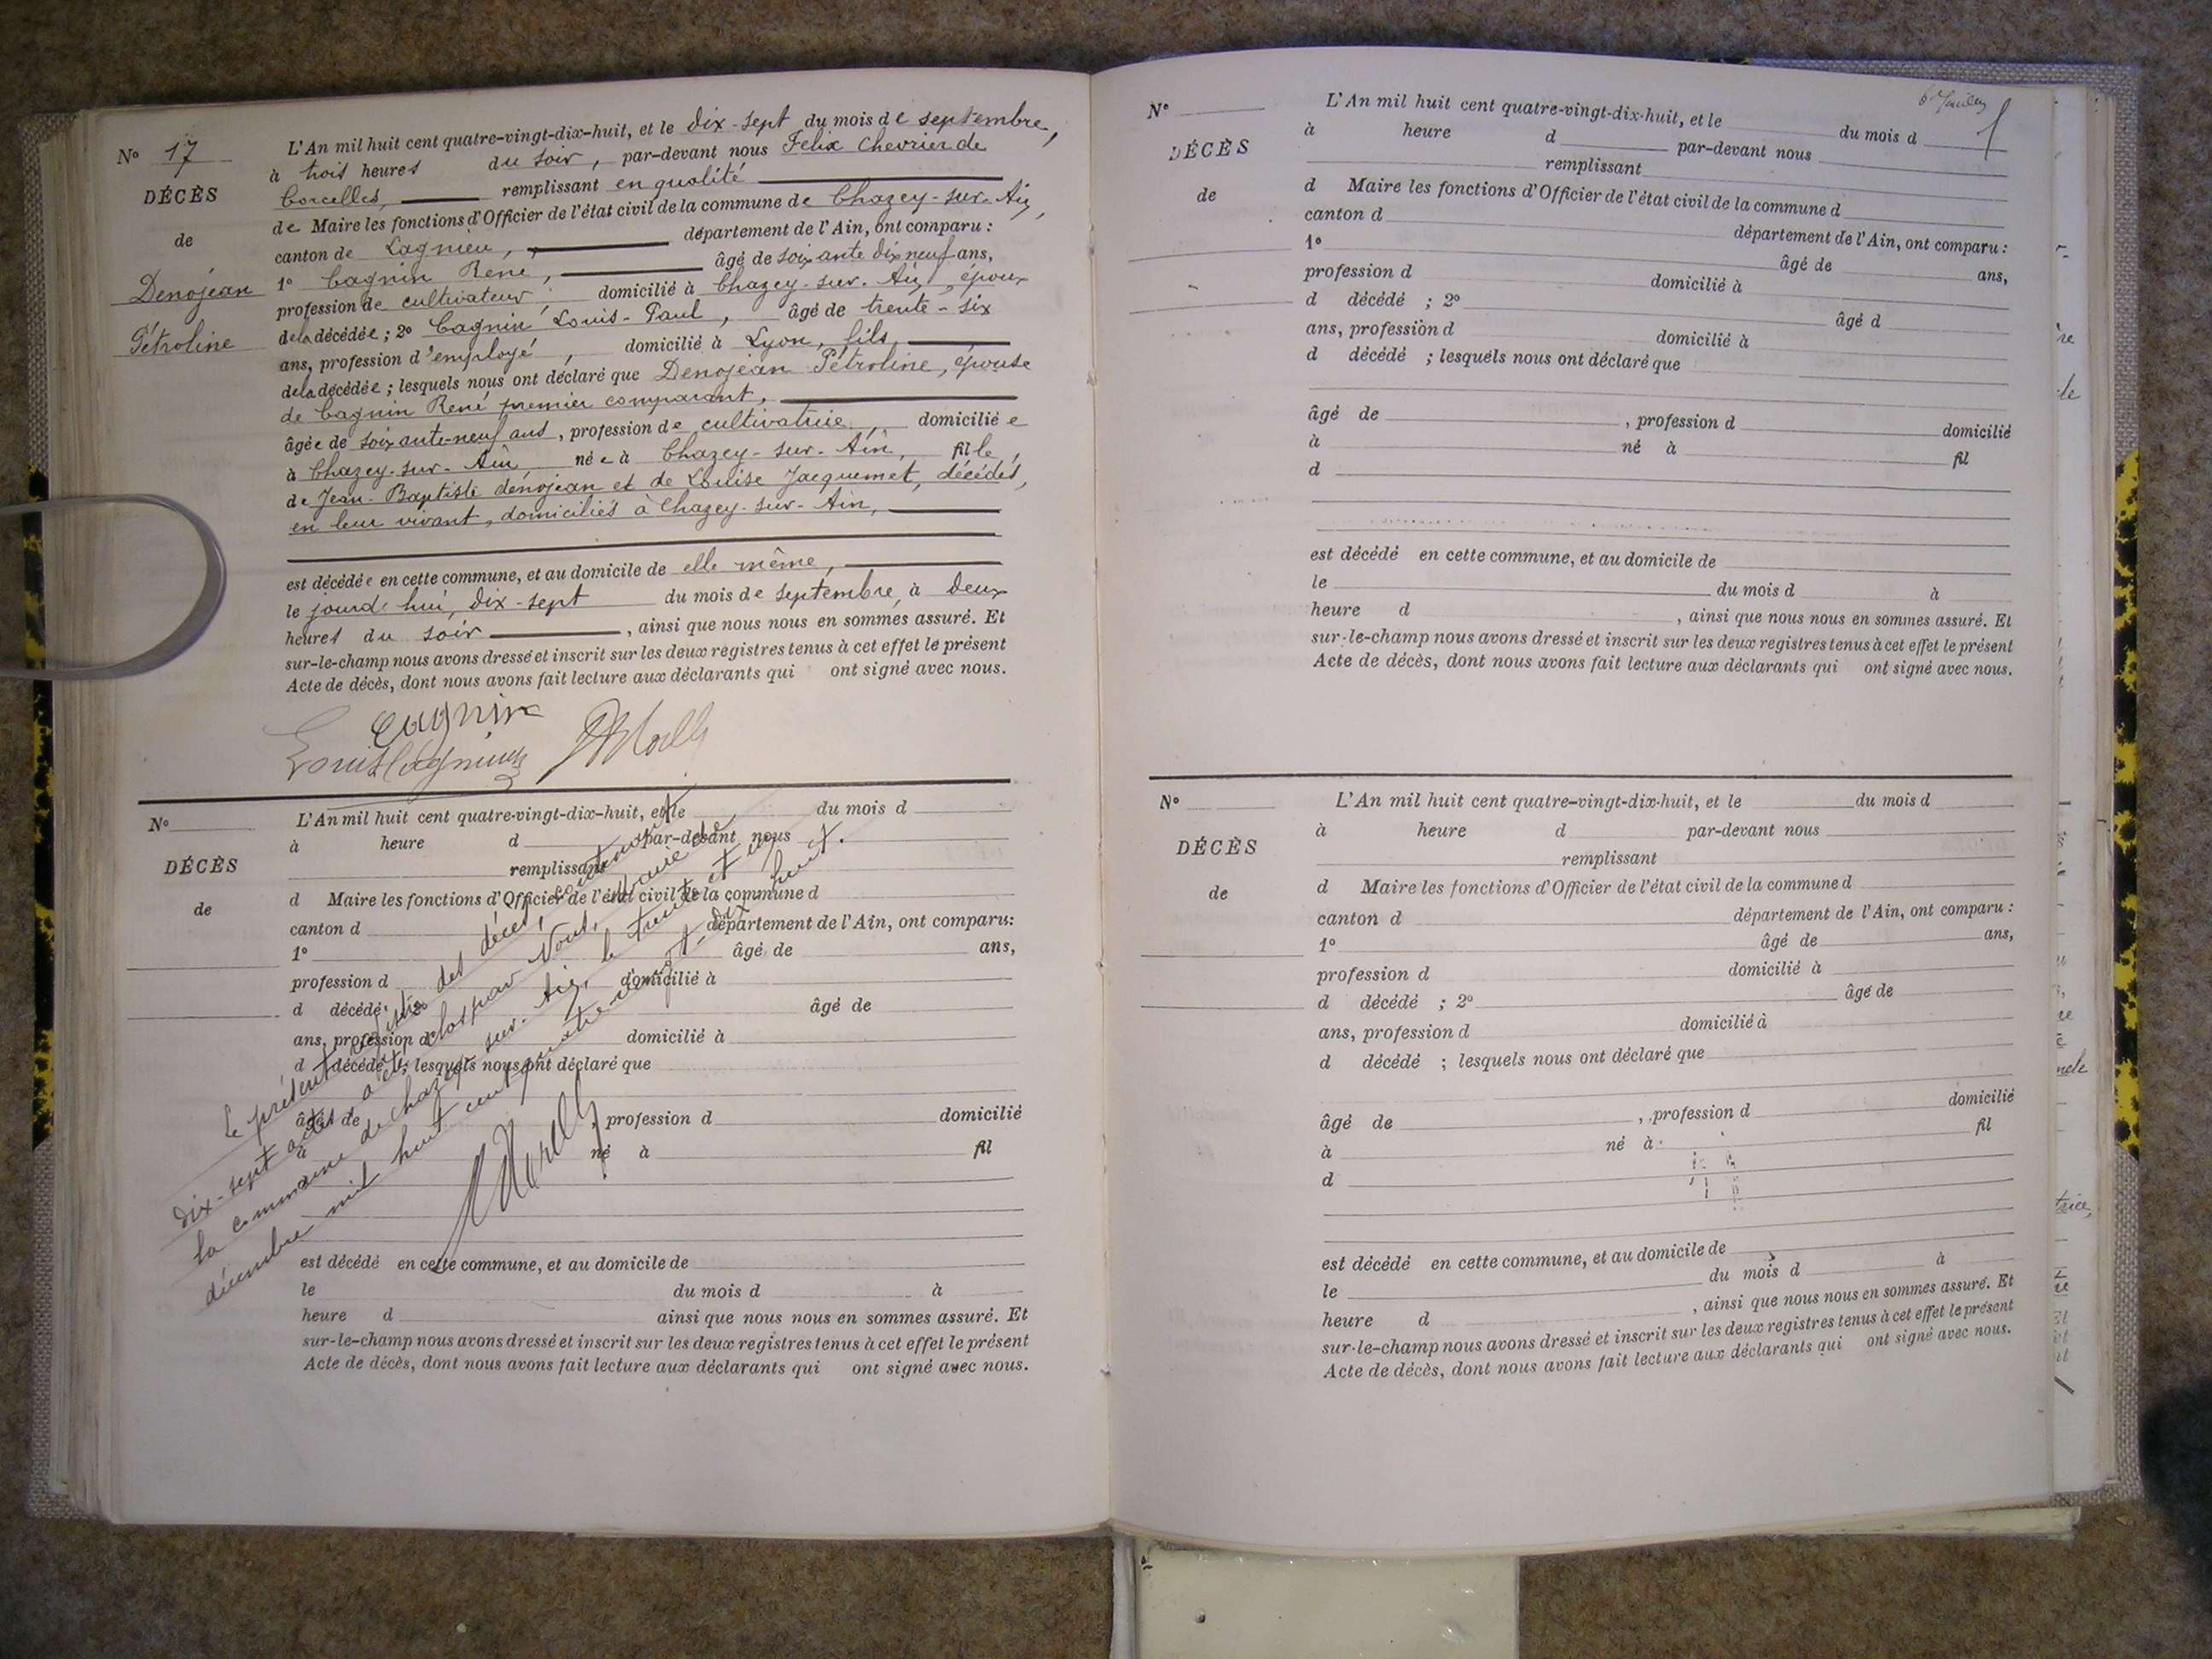 N° 17
DÉCÈS
de
Denojean
Pétroline
L'An mil huit cent quatre-vingt-dix-huit, et le dix-sept du mois de septembre,
à trois heures du soir, par-devant nous Félix Chevrier de
Corcelles, remplissant en qualité
de Maire les fonctions d'Officier de l'état civil de la commune de Chazey-sur-Ain,
canton de Lagnieu, département de l'Ain, ont comparu :
1° Cagnin René, âgé de soixante dix neuf ans,
profession de cultivateur domicilié à Chazey-sur-Ain, époux
de la décédée ; 2° Cagnin Louis-Paul, âgé de trente-six
ans, profession d'employé, domicilié à Lyon, fils
de la décédée ; lesquels nous ont déclaré que Denojean Pétroline, épouse
de Cagnin René premier comparant,
âgée de soixante-neuf ans, profession de cultivatrice, domiciliée
à Chazey-sur-Ain née à Chazey-sur-Ain, fille,
de Jean-Baptiste denojean et de Louise Jacquemet, décédés,
en leur vivant, domiciliés à Chazey-sur-Ain,
est décédée en cette commune, et au domicile de elle même,
le jourd'hui, dix-sept du mois de septembre, à deux
heures du soir, ainsi que nous nous en sommes assuré. Et
sur-le-champ nous avons dressé et inscrit sur les deux registres tenus à cet effet le présent
Acte de décès, dont nous avons fait lecture aux déclarants qui ont signé avec nous.
Cagnin
Louis Cagnin
N°
DÉCÈS
de
L'An mil huit cent quatre-vingt-dix-huit, et le du mois d
à heure d par-devant nous
remplissant
d Maire les fonctions d'Officier de l'état civil de la commune d
canton d département de l'Ain, ont comparu:
1° âgé de ans,
profession d domicilié à
d décédé ; 2° âgé de
ans, profession d domicilié à
d décédé ; lesquels nous ont déclaré que
âgé de , profession d domicilié
à né à fil
d
est décédé en cette commune, et au domicile de
le du mois d à
heure d ainsi que nous nous en sommes assuré. Et
sur-le-champ nous avons dressé et inscrit sur les deux registres tenus à cet effet le présent
Acte de décès, dont nous avons fait lecture aux déclarants qui ont signé avec nous.
Le présent registre des décès, contenant
dix-sept actes a été clos par Nous, Maire de
la commune de Chazey-sur-Ain, le trente et un
décembre mil huit cent quatre-vingt-dix huit.
N°
DÉCÈS
de
L'An mil huit cent quatre-vingt-dix-huit, et le du mois d
à heure d par-devant nous
remplissant
d Maire les fonctions d'Officier de l'état civil de la commune d
canton d département de l'Ain, ont comparu :
1° âgé de ans,
profession d domicilié à
d décédé ; 2° âgé d
ans, profession d domicilié à
d décédé ; lesquels nous ont déclaré que
âgé de , profession d domicilié
à né à fil
d
est décédé en cette commune, et au domicile de
le du mois d à
heure d , ainsi que nous nous en sommes assuré. Et
sur-le-champ nous avons dressé et inscrit sur les deux registres tenus à cet effet le présent
Acte de décès, dont nous avons fait lecture aux déclarants qui ont signé avec nous.
N°
DÉCÈS
de
L'An mil huit cent quatre-vingt-dix-huit, et le du mois d
à heure d par-devant nous
remplissant
d Maire les fonctions d'Officier de l'état civil de la commune d
canton d département de l'Ain, ont comparu :
1° âgé de ans,
profession d domicilié à
d décédé ; 2° âgé de
ans, profession d domicilié à
d décédé ; lesquels nous ont déclaré que
âgé de , profession d domicilié
à né à fil
d
est décédé en cette commune, et au domicile de
le du mois d à
heure d , ainsi que nous nous en sommes assuré. Et
sur-le-champ nous avons dressé et inscrit sur les deux registres tenus à cet effet le présent
Acte de décès, dont nous avons fait lecture aux déclarants qui ont signé avec nous.